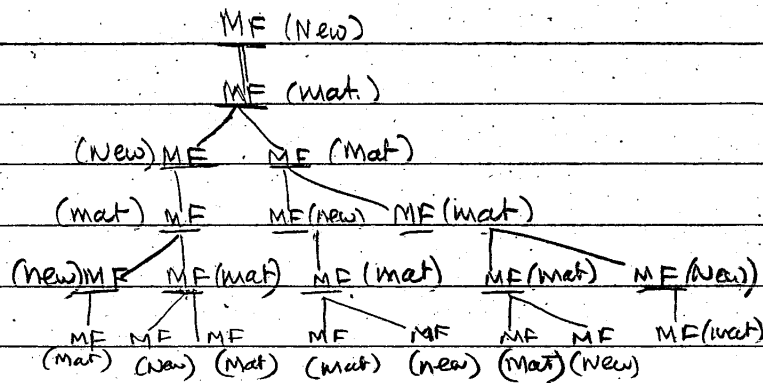 MF (New)
MF (mat.)
(New) MF MF (Mat)
(mat) MF MF (new) MF (mat)
(new) MF MF (mat) MF (mat) MF (mat) MF (New)
MF MF MF MF MF MF MF MF (mat)
(Mat) (New) (Mat) (mat) (new) (Mat) (New)